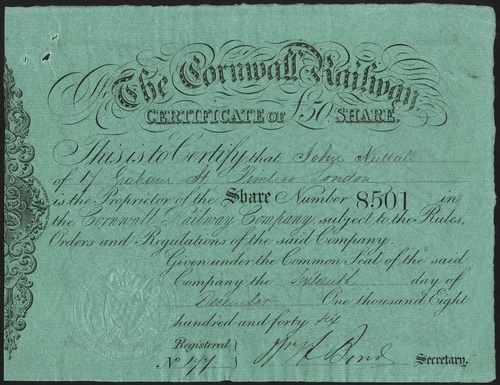 The Cornwall Railway.
CERTIFICATE OF £50 SHARE.
This is to Certify that John Nuttall
of 17 Graham St. Pimlico London
is the Proprietor of the Share Number 8501 in
the Cornwall Railway Company, subject to the Rules,
Orders and Regulations of the said Company.
Given under the Common Seal of the said
Company the Sixteenth day of
December One thousand Eight
hundred and forty six
Registered
No 147
Secretary.